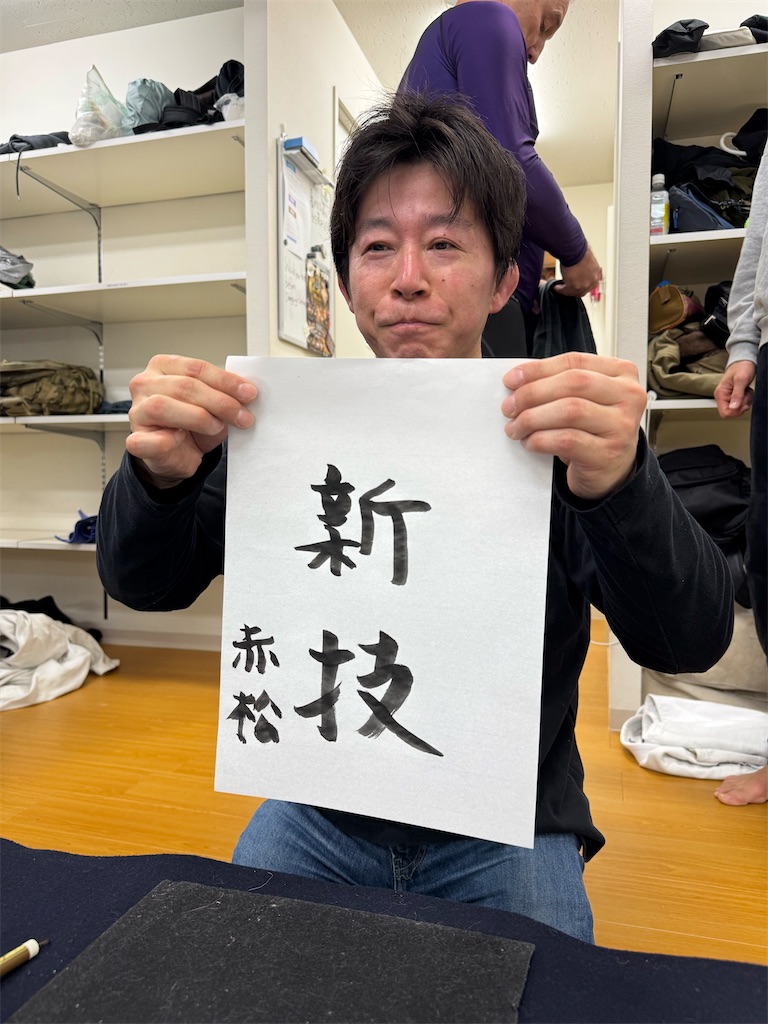 新技
赤松